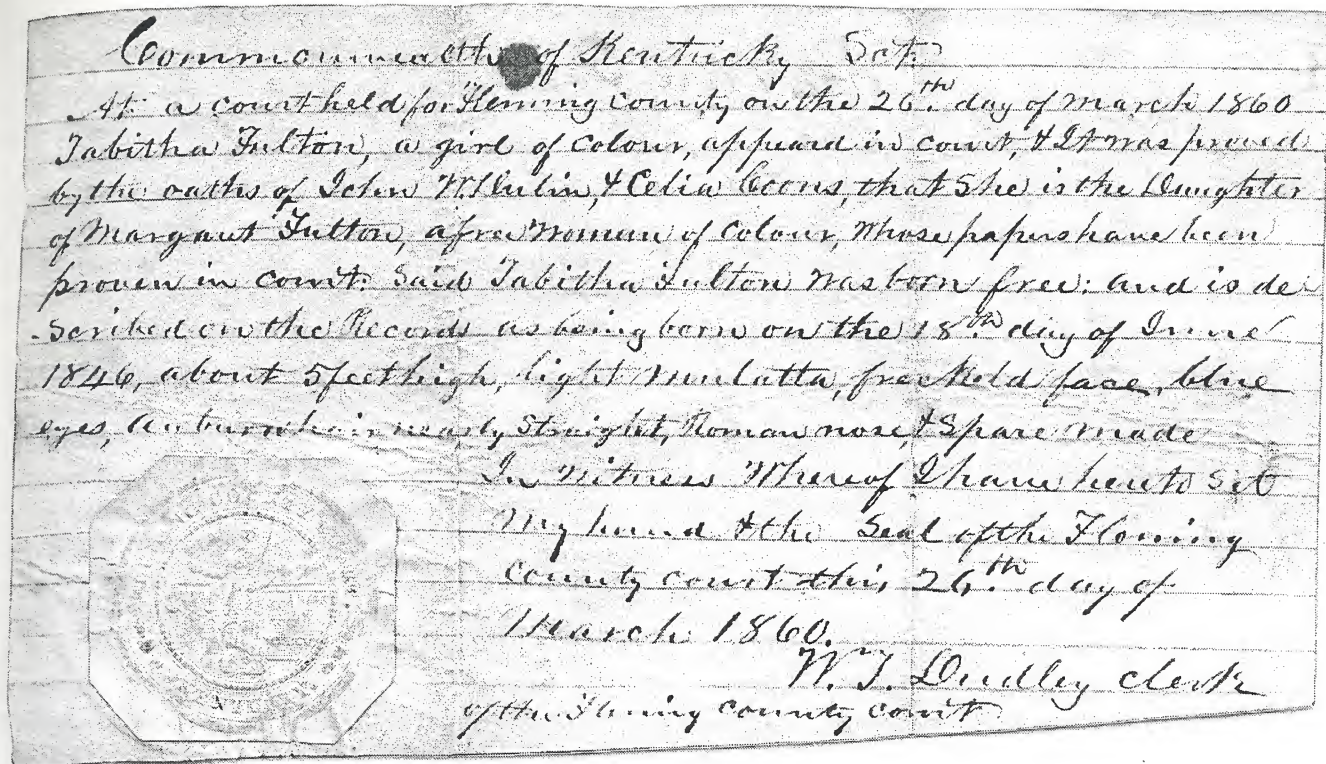 Commonwealth of Kentucky Sct.
At a court held for Fleming County on the 26th day of March 1860
Tabitha Fulton, a girl of Colour, appeard in court, & It was proved
by the oaths of John W. Dulin, & Celia Coons, that She is the Daughter
of Margaret Fulton, a free Woman of Colour, Whose papers have been
proven in court. Said Tabitha Fulton Was born free: and is de
-scribed on the Records as being born on the 18th day of June
1846, about 5 feet high, light Mulatta, freckeld face, blue
eyes, Auburn hair nearly Straight, Roman nose, & Spare made
In Witness Whereof I have hereto Set
My hand & the Seal of the Fleming
County court this 26th day of
March 1860.
W. T. Dudley Clerk
of the Fleming County Court